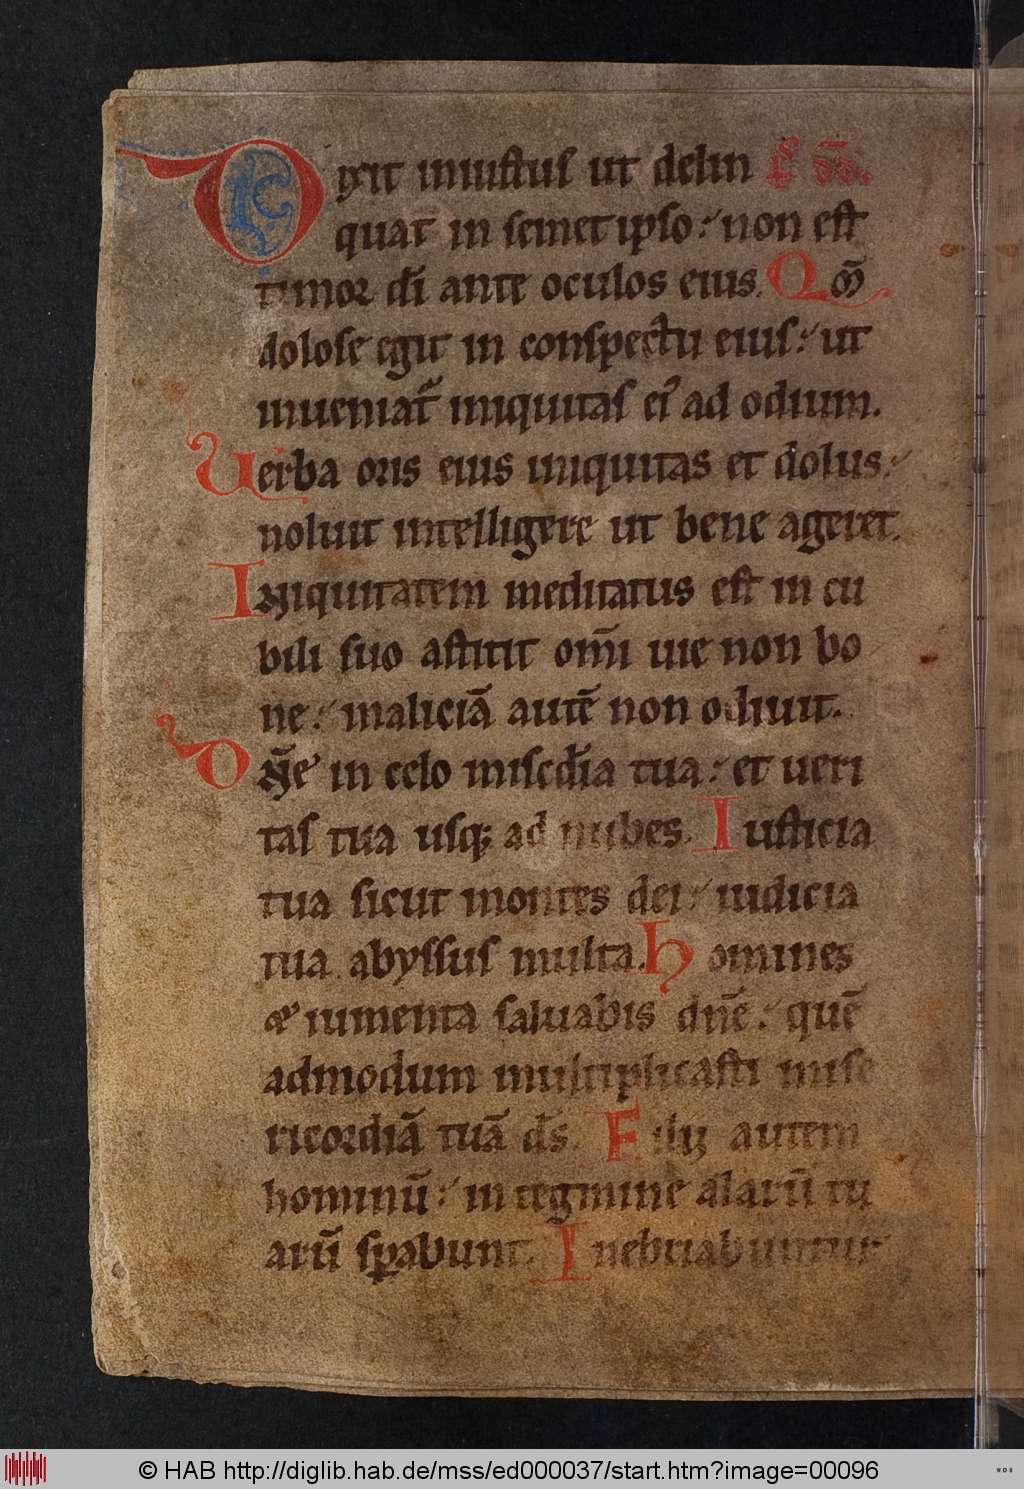 Dixit iniustus ut delin
quat in semetipso: non est
timor dī ante oculos eius. Qm̄
dolose egit in conspectu eius: ut
inueniat᷑ iniquitas ei᷒ ad odium.
Uerba oris eius iniquitas et dolus:
noluit intelligere ut bene ageret.
Iniquitatem meditatus est in cu
bili suo astitit om̄i uie non bo
ne: maliciā autē non odiuit.
Dn̄e in celo misc̄dia tua: et ueri
tas tua usq; ad nubes. Iusticia
tua sicut montes dei: iudicia
tua abyssus multa. Homines
& iumenta saluabis dn̄e: quē
admodum multiplicasti mise
ricordiā tuā ds̄. Filij autem
hominū: in tegmine alarū tu
arū sp̄abunt. Inebriabuntur
© HAB http://diglib.hab.de/mss/ed000037/start.htm?image=00096